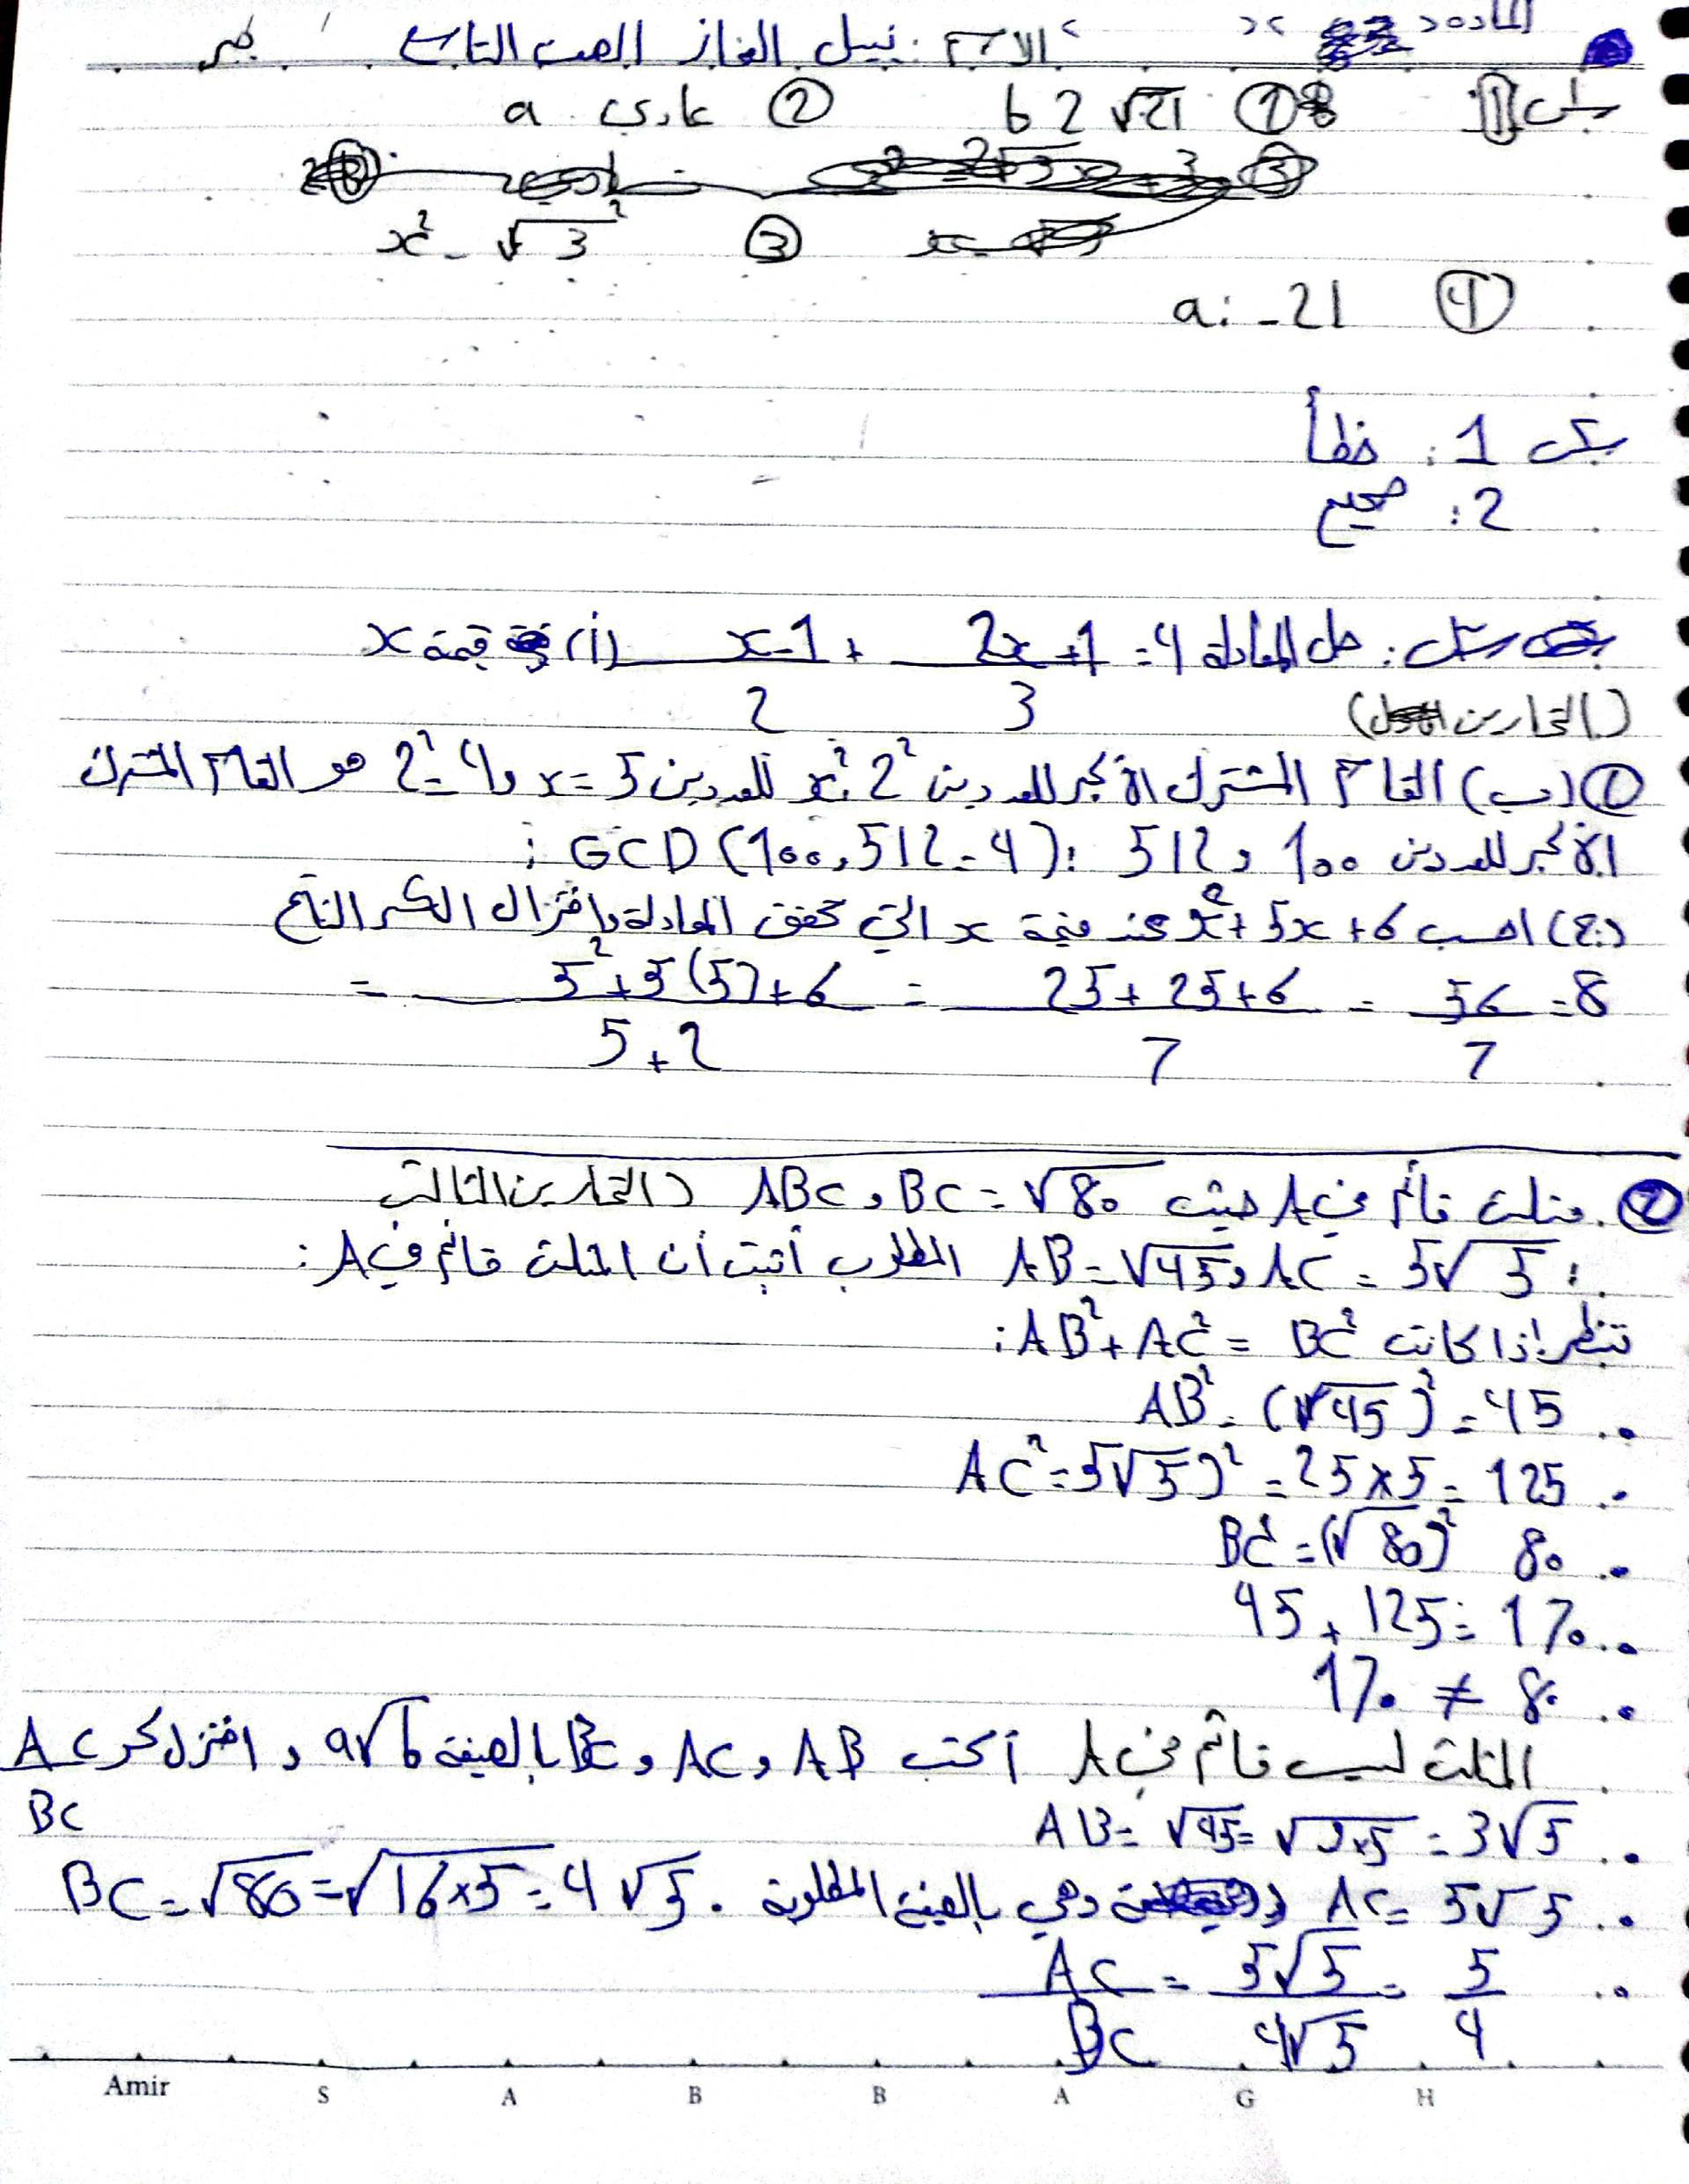 المادة: الاسم: نبيل الغاز الصف التاسع
س1 ① b 2√21 ② عادي a
③ x² - √3²
④ a: -21
س2 1: خطأ
2: صحيح
حل المعادلة x-1/2 + 2x+1/3 = 4 (أ) قيمة x
(التمارين
① (ب) القاسم المشترك الأكبر للعددين 2² x² للعددين x=5 و 2²=4 هو القاسم المشترك
الأكبر للعددين 100 و 512: GCD (100,512=4):
(ج) احسب x²+5x+6 عند قيمة x التي تحقق المعادلة واختزال الكسر الناتج
= 5²+5(5)+6/5+2 = 25+25+6/7 = 56/7 = 8
② مثلث قائم في A حيث ABC, BC=√80 (التمارين الثالث
AB=√45, AC=5√5 المطلوب أثبت أن المثلث قائم في A:
ننظر إذا كانت AB²+AC² = BC²:
AB²=(√45)²=45
AC²=5√5)²=25×5=125
BC²=(√80)² 80
45+125=170
170≠80
المثلث ليس قائم في A أكتب AB و AC و BC بالصيغة a√b و اختزل كسر AC/BC
AB=√45=√9×5=3√5
AC=5√5 وهي بالصيغة المطلوبة. BC=√80=√16×5=4√5
AC/BC = 5√5/4√5 = 5/4
Amir S A B B A G H